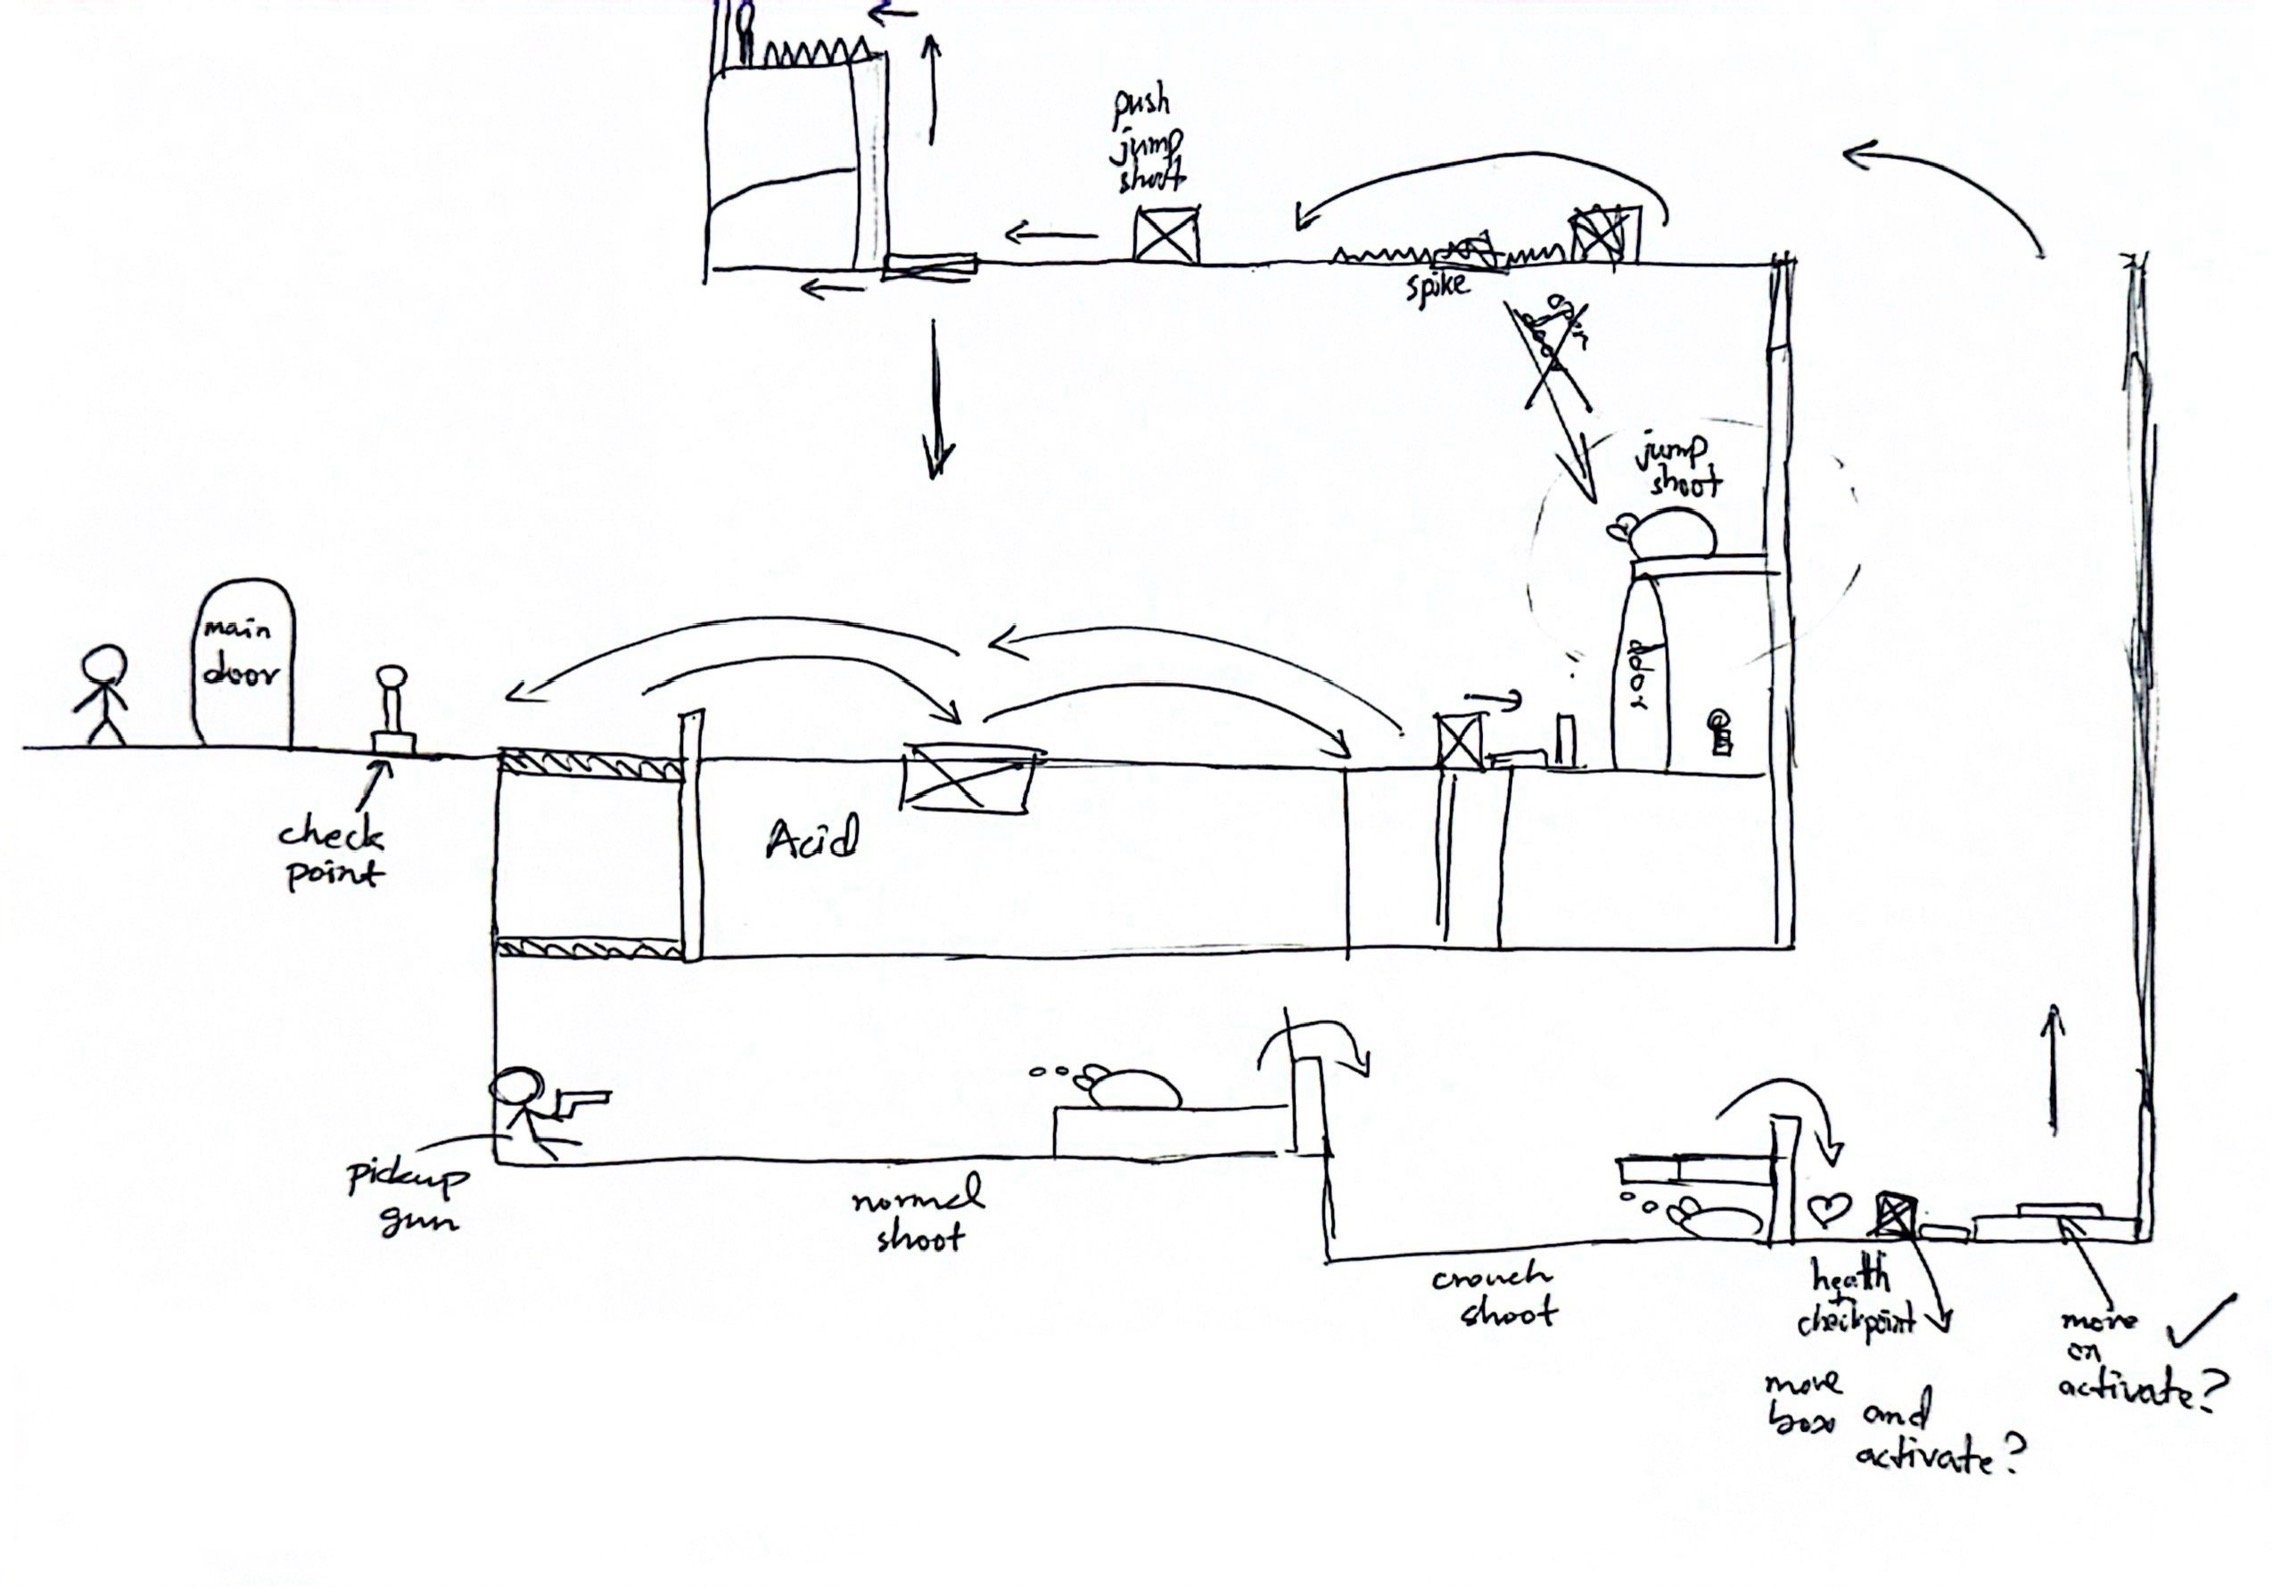 push
jump
shoot
spike
jump
shoot
main
door
door
check
point
Acid
pickup
gun
normal
shoot
crouch
shoot
health
+
checkpoint
move
box and
activate?
move
on
activate?